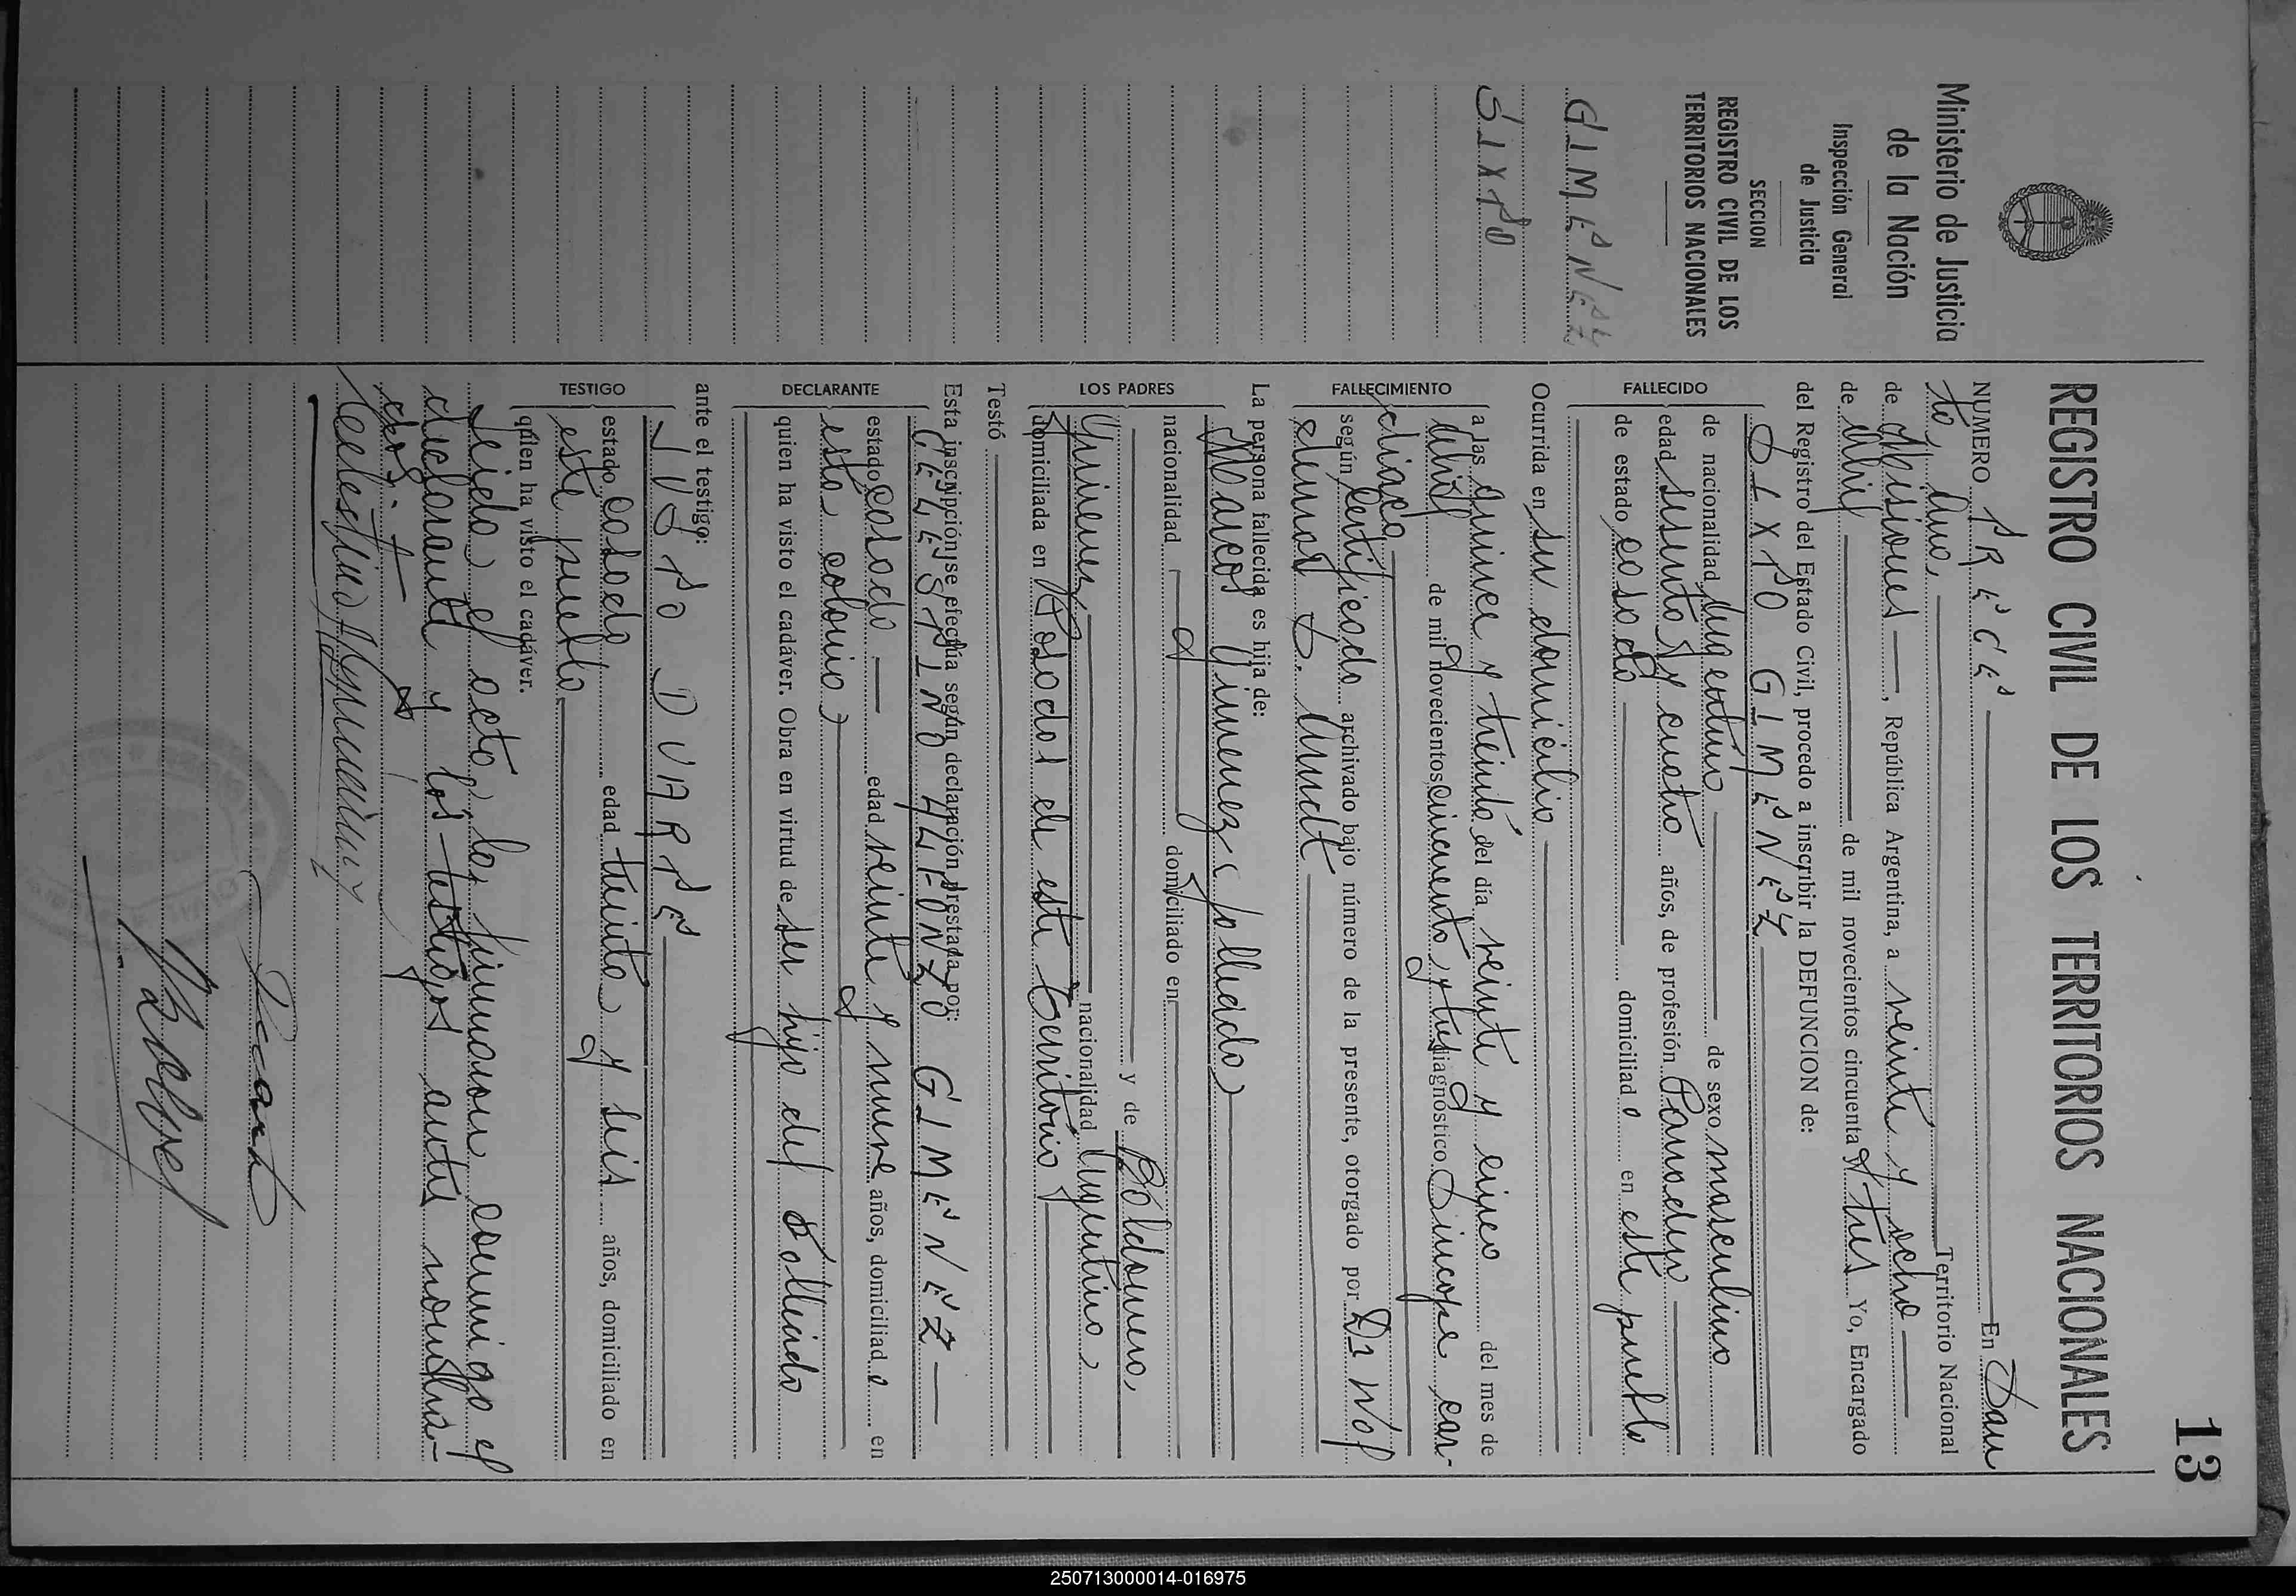 13
REGISTRO CIVIL DE LOS TERRITORIOS NACIONALES
Ministerio de Justicia
de la Nación
Inspección General
de Justicia
SECCION
REGISTRO CIVIL DE LOS
TERRITORIOS NACIONALES
GIMENEZ
SIXTO
NUMERO TRECE En San
ta Ana, Territorio Nacional
de Misiones, República Argentina, a veinte y ocho
de abril de mil novecientos cincuenta y tres Yo, Encargado
del Registro del Estado Civil, procedo a inscribir la DEFUNCION de:
FALLECIDO
SIXTO GIMENEZ
de nacionalidad Argentino de sexo masculino
edad sesenta y cuatro años, de profesión
de estado casado domiciliado en este pueblo
Ocurrida en su domicilio
FALLECIMIENTO
a las quince y treinta del día veinte y cinco del mes de
abril de mil novecientos cincuenta y tres diagnóstico Sincope car-
diaco
según Certificado archivado bajo número de la presente, otorgado por
La persona fallecida es hija de:
LOS PADRES
Marcos Gimenez (fallecido)
nacionalidad domiciliado en
y de Baldomera
Gimenez nacionalidad Argentina,
domiciliada en Posadas de este Territorio
Testó
Esta inscripción se efectúa según declaración prestada por:
DECLARANTE
CELESTINO ILEFONZO GIMENEZ
estado casado edad veinte y nueve años, domiciliado en
esta colonia
quien ha visto el cadáver. Obra en virtud de ser hijo del fallecido
ante el testigo:
TESTIGO
JUSTO DUARTE
estado casado edad treinta y seis años, domiciliado en
este pueblo
quien ha visto el cadáver.
Leida el acta, la firmaron conmigo el
declarante y los testigos antes nombra-
dos.-